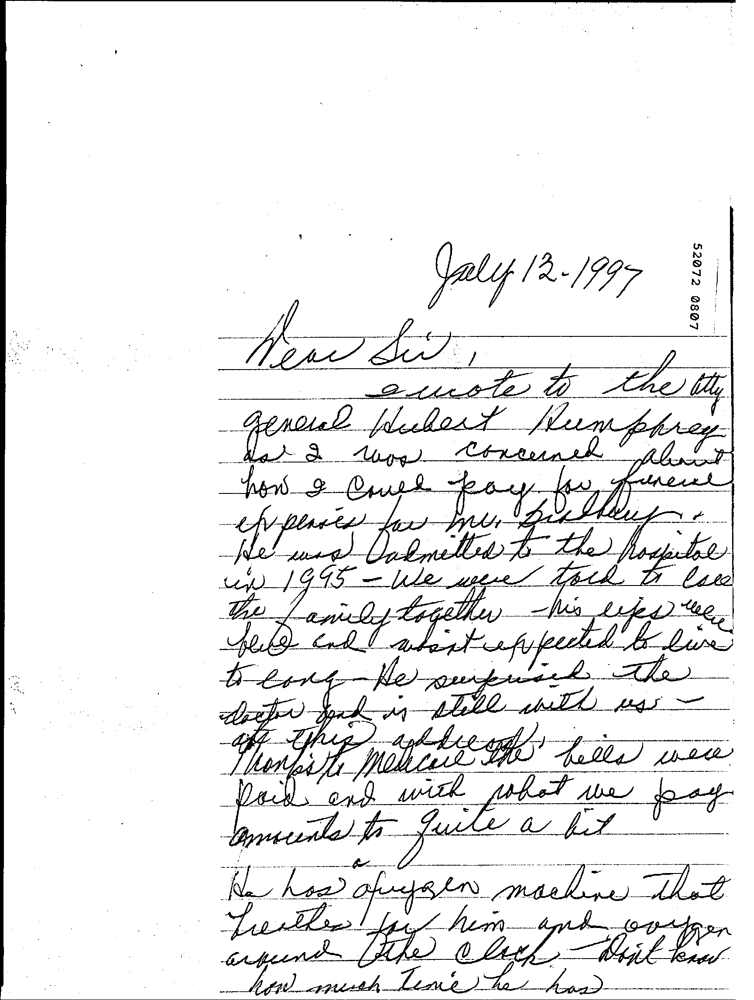 July 12-1997
52072 0807
Dear Sir,
I wrote to the Atty
general Hubert Humphrey
as I was concerned about
how I could pay for funeral
expenses for Mr.
He was admitted to the hospital
in 1995 - We were told to call
the family together - his lips were
blue and wasn't expected to live
to long - He surprised the
doctor and is still with us -
at this address,
Thanks to Medicare the bills were
paid and with what we pay
amounts to quite a bit
He has a oxygen machine that
breathes for him and oxygen
around the clock - Don't know
how much time he has